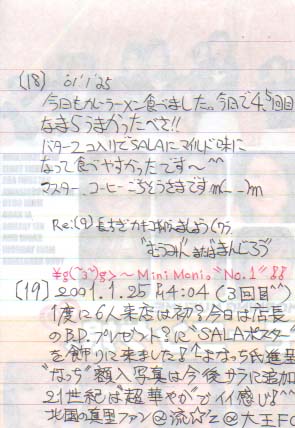 (18) '01'1'25
今日もカレーラーメン食べました。今日で4,5回目
なまらうまかったべさ!!
バター2コ入りでSALAにマイルド味に
なって食べやすかったです〜^^
マスター、コーヒーごちそうさまですm(_ _)m
Re:(9) 長すぎ
"むつみん" "まんじろう"
〜Mini Moni。"No.1"
(19) 2001.1.25 PM4:04 (3回目^^)
1度に6人来店は初?今日は店長
のB.D.プレゼント?に"SALAポスター"
を飾りに来ました!よなっち氏進呈
"なっち"額入写真は今後サラに追加
21世紀は"超華やか"でイイ感じ!^^
北国の真里ファン@流☆Z@大王FC